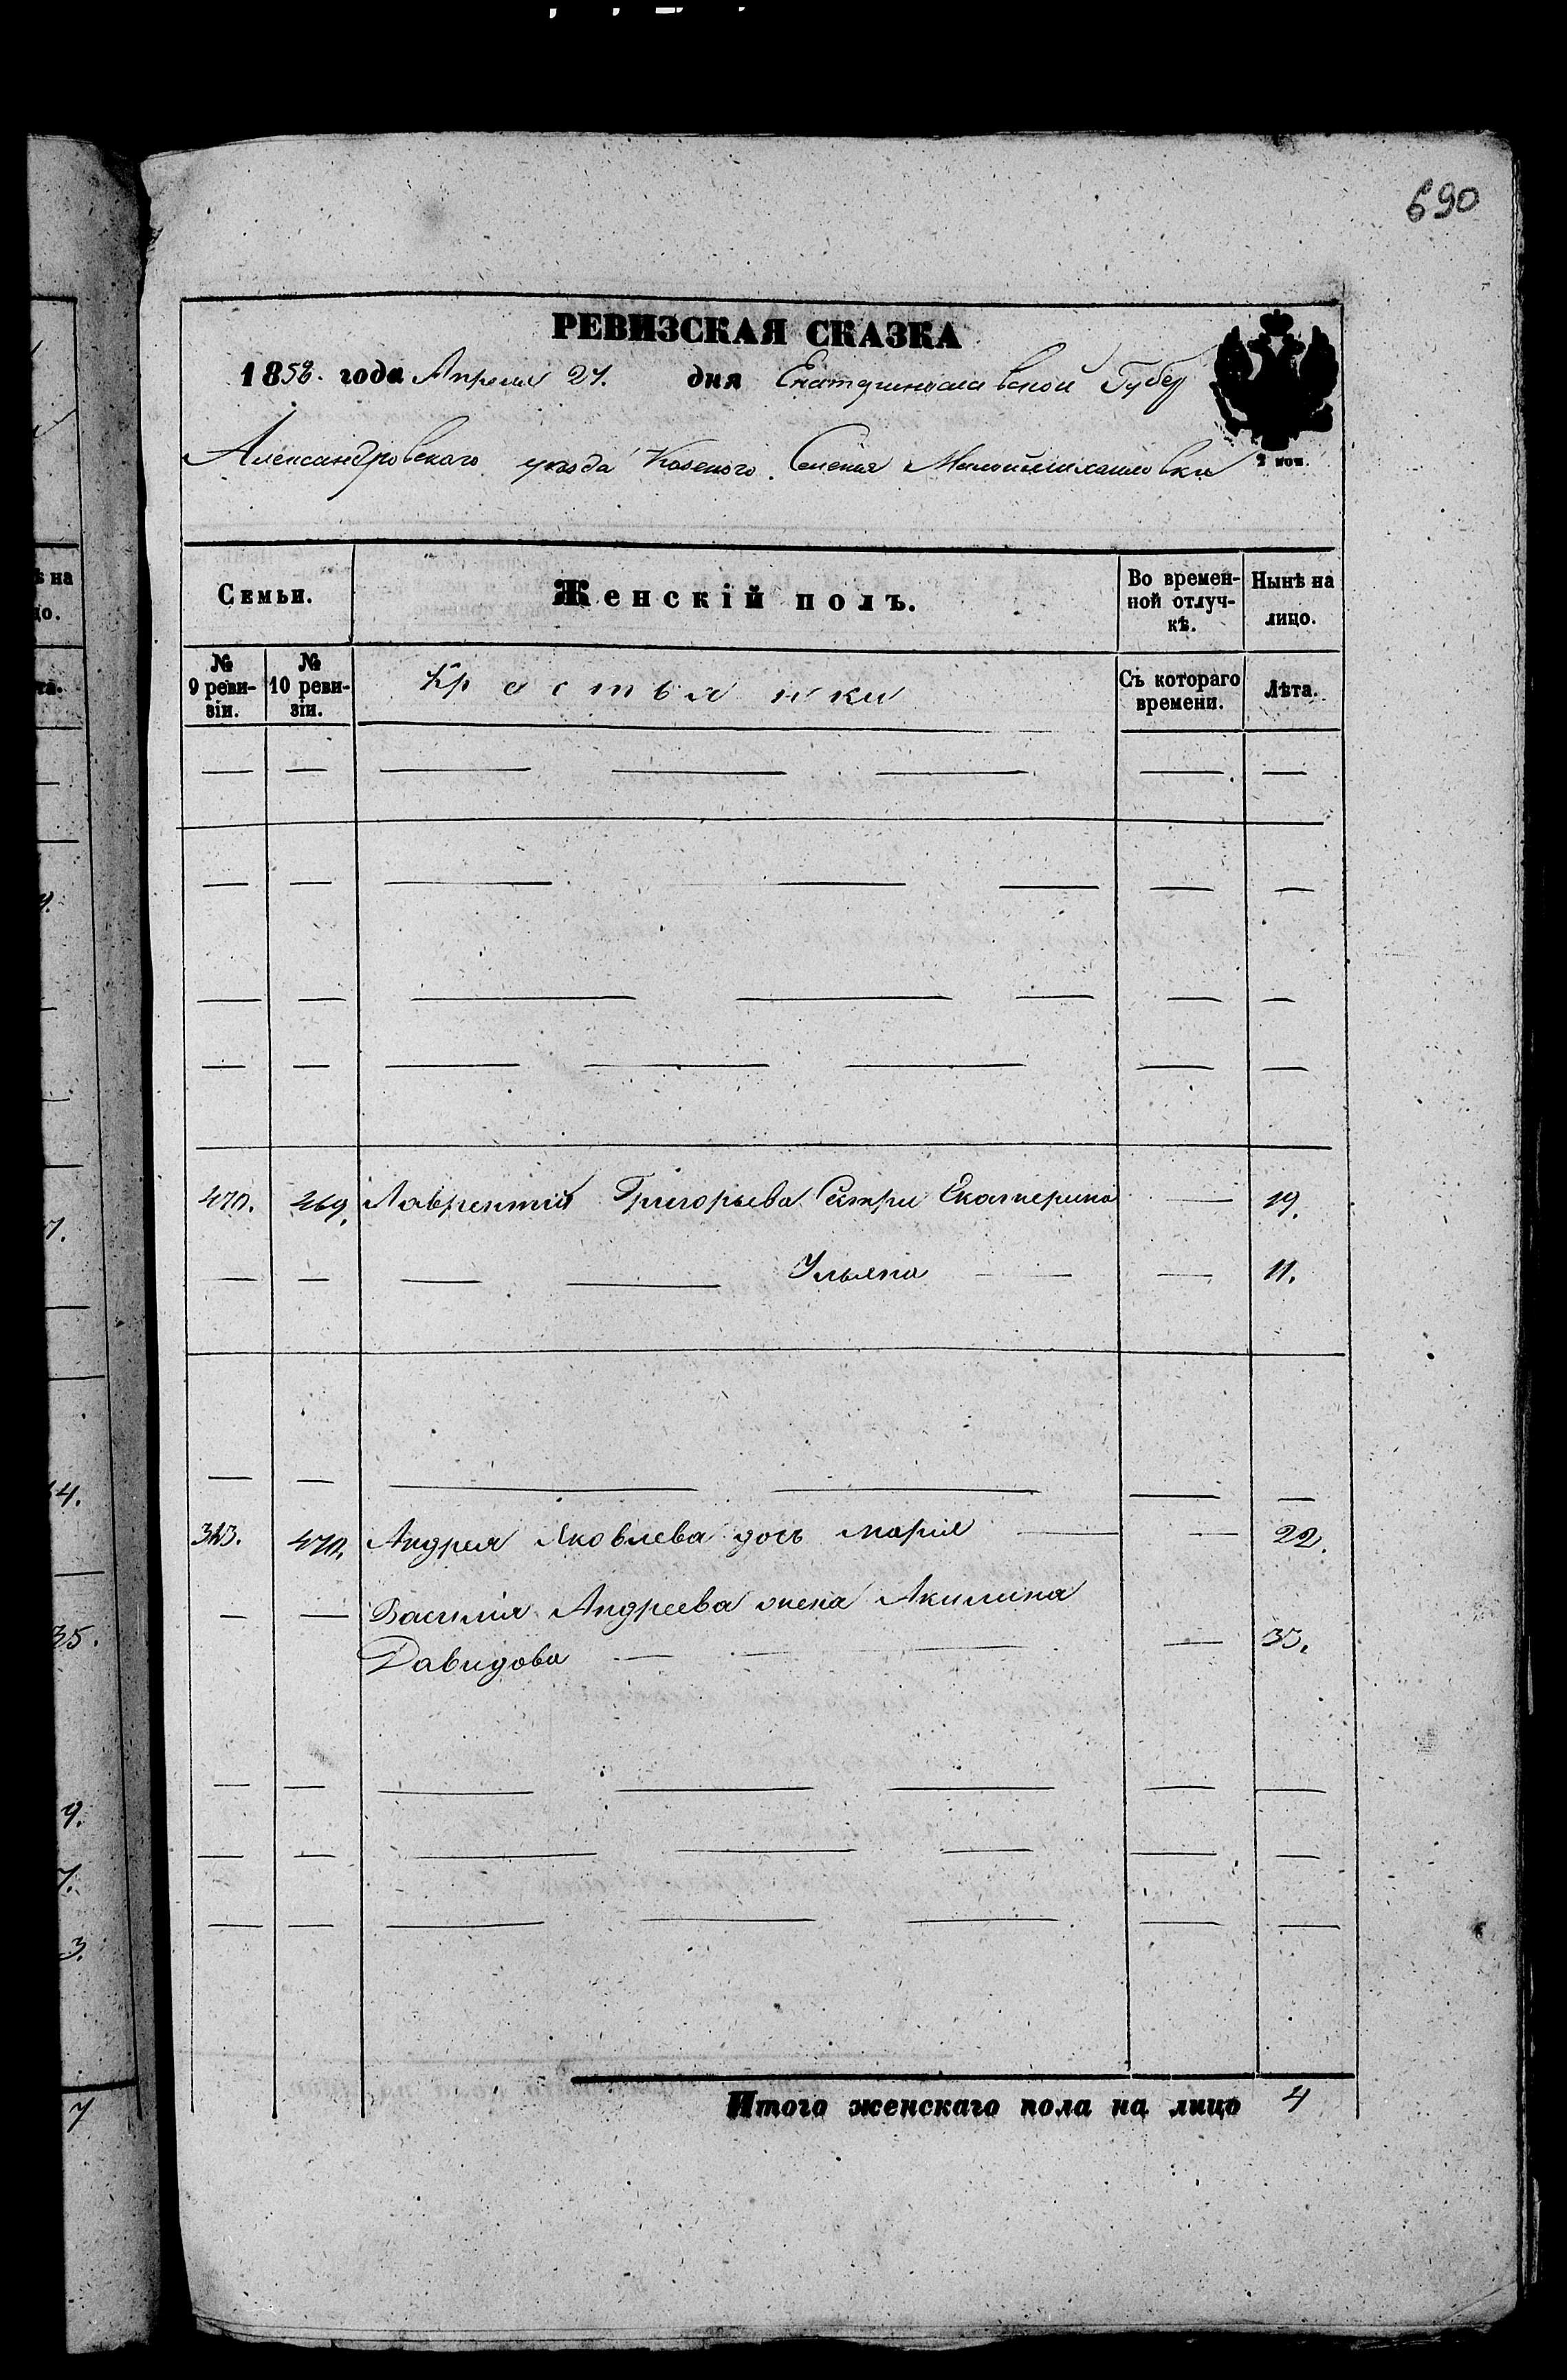 690
РЕВИЗСКАЯ СКАЗКА
1858. года Апреля 27. дня Екатеринославской Губер
Александровскаго уезда Казеного Селения Маломихайловки
2 коп.
Семьи.
Женскій полъ.
Во времен-
ной отлуч-
кѣ.
Нынѣ на
лицо.
№
9 реви-
зіи.
№
10 реви-
зіи.
Крестьянки
Съ котораго
времени.
Лѣта.
470. 469. Лаврентия Григорьева Сестри Екатерина — 19.
— — — — Ульяна — — 11.
— — — — — —
470. Андрея Яковлева дочь мария — — 22.
— — Василия Андреева жена Акилина
Давидова — — — — 33.
Итого женскаго пола на лицо 4
ѣ на
цо.
та.
7.
4.
35.
9.
7.
3.
7